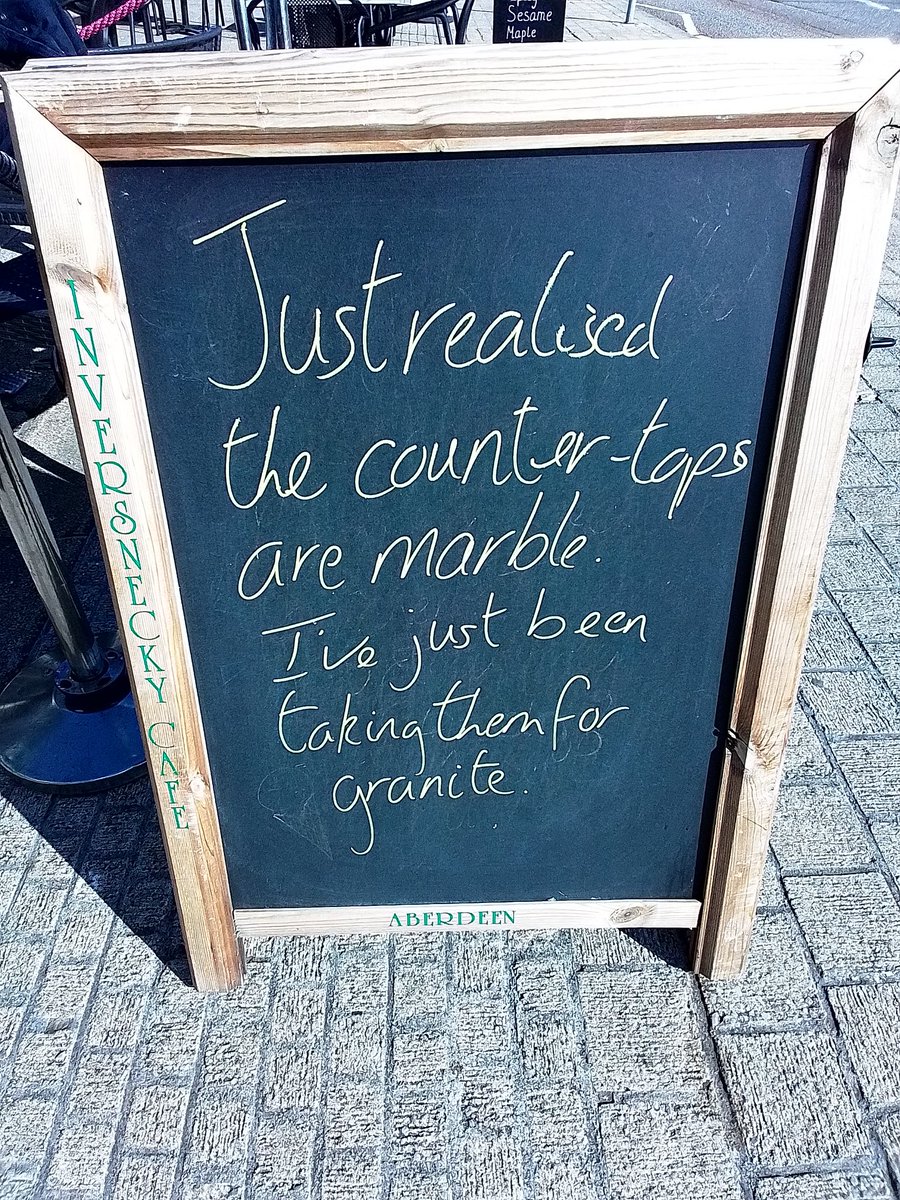 Sesame
Maple
INVERSNECKY CAFE
Just realised
the counter-tops
are marble.
I've just been
taking them for
granite.
ABERDEEN